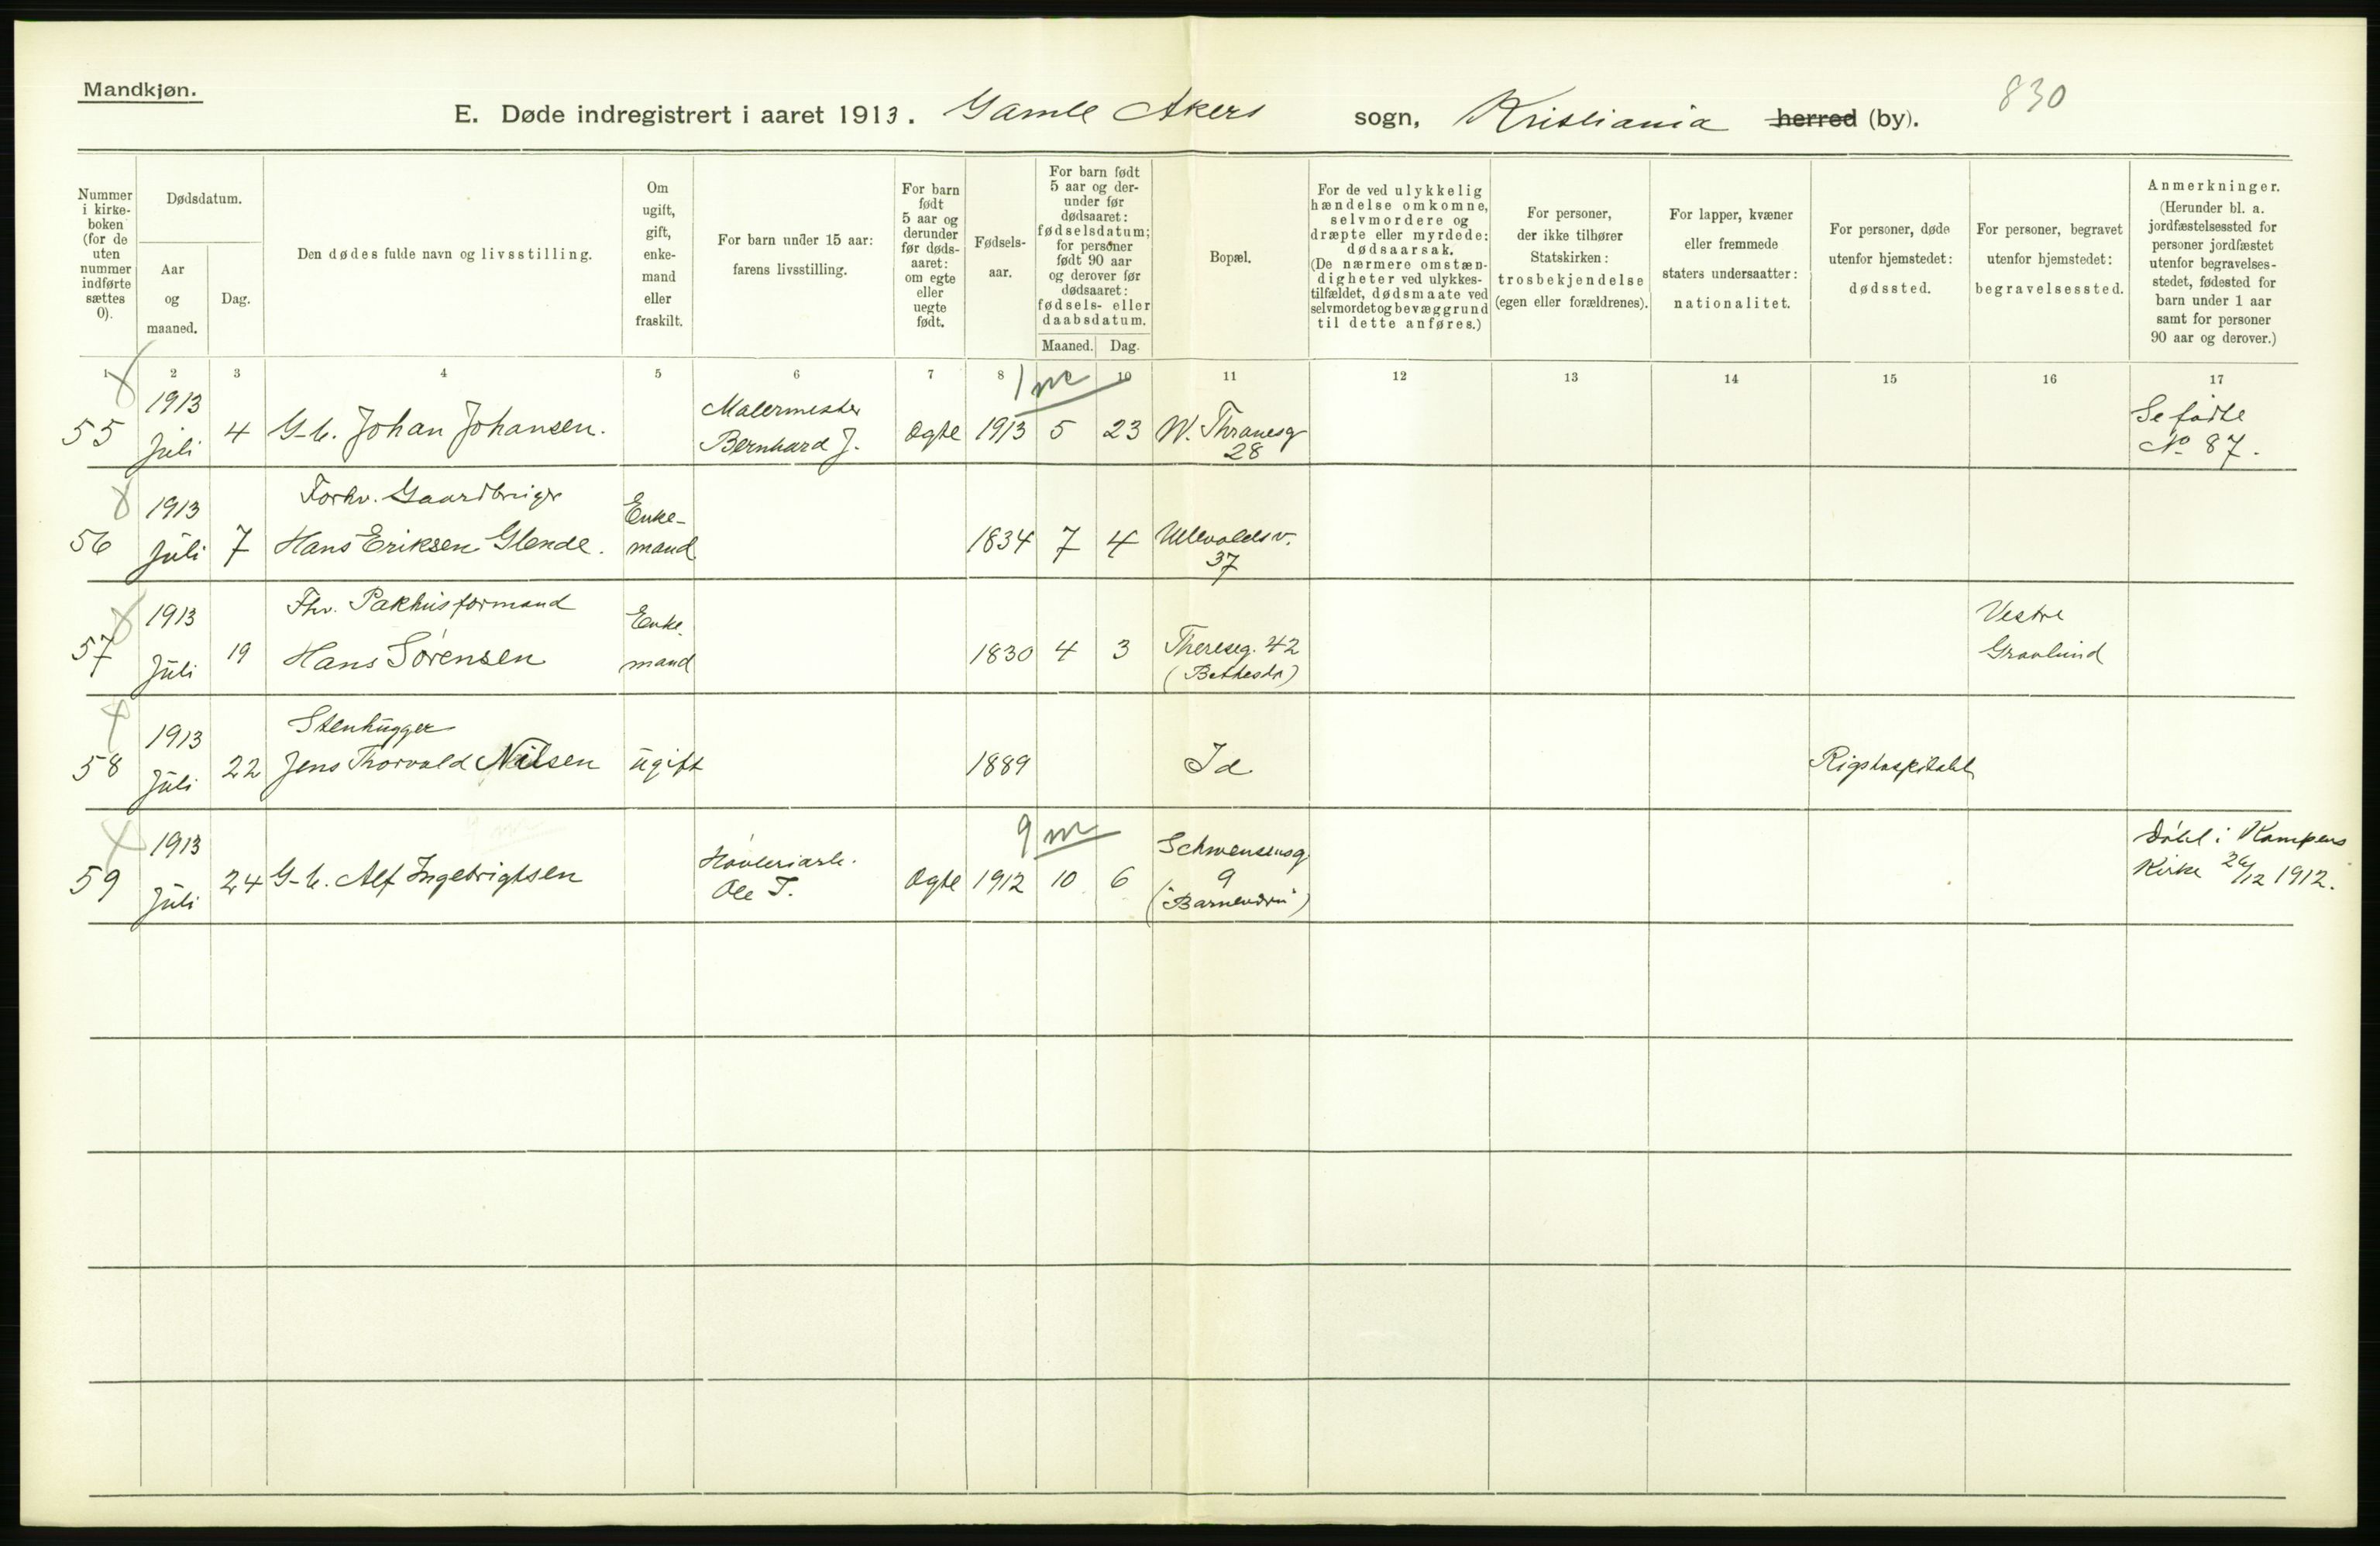 Mandkjøn.
E. Døde indregistrert i aaret 1913. Gamle Akers sogn, Kristiania herred (by).
830
Nummer i kirke-boken (for de uten nummer indførte sættes 0).
Dødsdatum.
Aar og maaned.
Dag.
Den dødes fulde navn og livsstilling.
Om ugift, gift, enke-mand eller fraskilt.
For barn under 15 aar: farens livsstilling.
For barn født 5 aar og derunder før døds-aaret: om egte eller uegte født.
Fødsels-aar.
For barn født 5 aar og der-under før dødsaaret: fødselsdatum; for personer født 90 aar og derover før dødsaaret: fødsels- eller daabsdatum.
Maaned. Dag.
Bopæl.
For de ved ulykkelig hændelse omkomne, selvmordere og dræpte eller myrdede: dødsaarsak. (De nærmere omstæn-digheter ved ulykkes-tilfældet, dødsmaate ved selvmordet og bevæggrund til dette anføres.)
For personer, der ikke tilhører Statskirken: trosbekjendelse (egen eller forældrenes).
For lapper, kvæner eller fremmede staters undersaatter: nationalitet.
For personer, døde utenfor hjemstedet: dødssted.
For personer, begravet utenfor hjemstedet: begravelsessted.
Anmerkninger. (Herunder bl. a. jordfæstelsessted for personer jordfæstet utenfor begravelses-stedet, fødested for barn under 1 aar samt for personer 90 aar og derover.)
1 2 3 4 5 6 7 8 9 10 11 12 13 14 15 16 17
1 m
55 1913 Juli 4 G-b. Johan Johansen. Malermester Bernhard J. Ægte 1913 5 23 W. Thranesg 28 Se fødte No 87.
56 1913 Juli 7 Forhv. Gaardbruger Hans Eriksen Glende. Enke-mand 1834 7 4 Ullevoldsv. 37
57 1913 Juli 19 Fhv. Pakhusformand Hans Sørensen Enke-mand 1830 4 3 Thereseg. 42 (Bethesda) Vestre Gravlund
58 1913 Juli 22 Stenhugger Jens Thorvald Nilsen ugift 1889 Id Rigshospitalet
9 m
59 1913 Juli 24 G-b. Alf Ingebrigtsen Ole I. Ægte 1912 10 6 Schwensensg 9 Døbt i Kampens Kirke 26/12 1912.